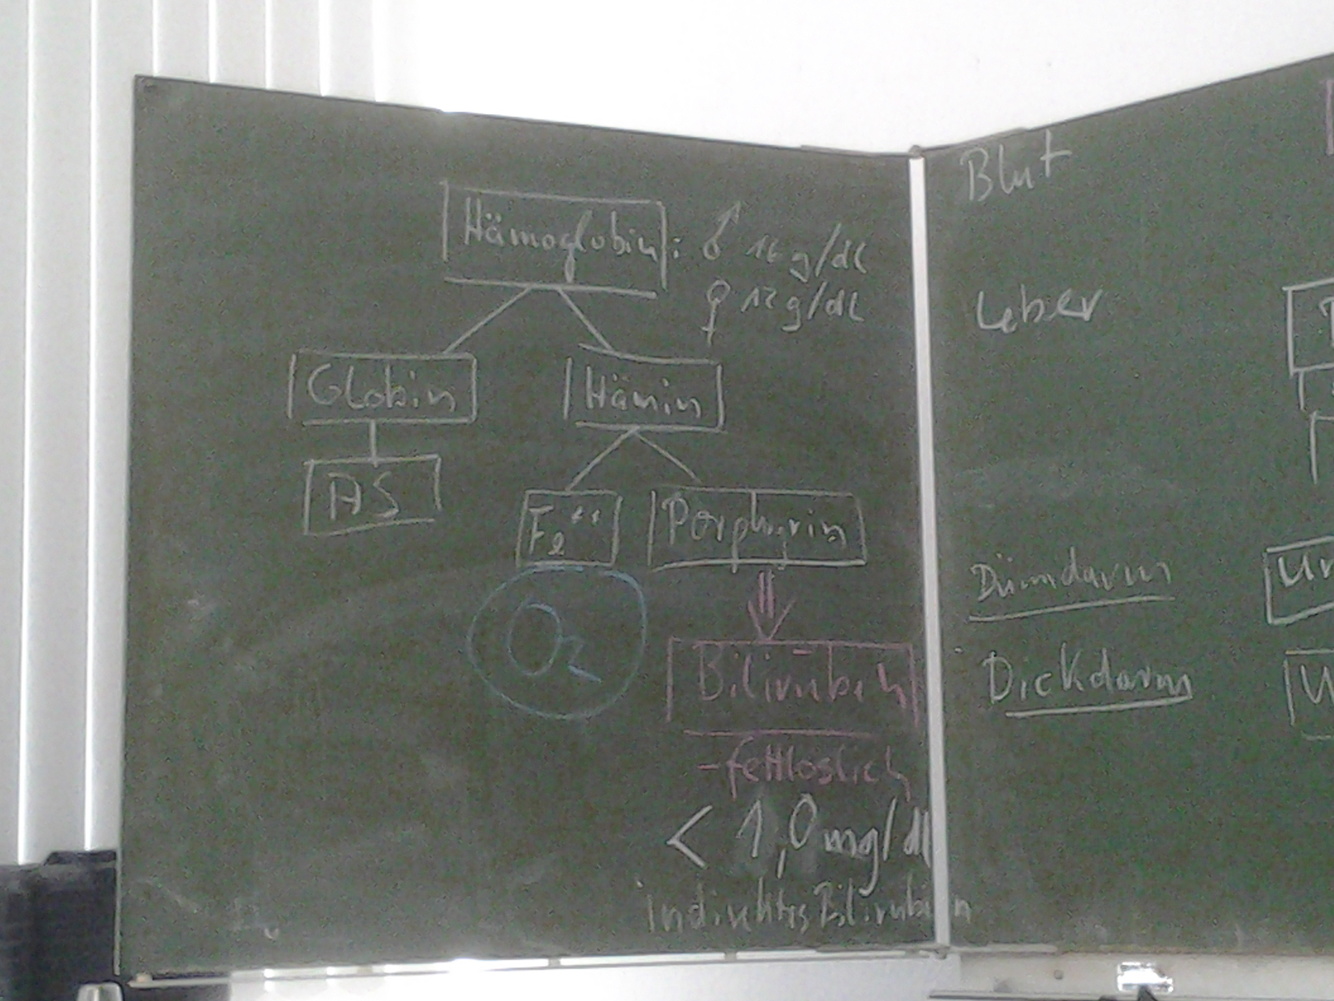 Hämoglobin : ♂ 16 g/dl
♀ 12 g/dl
Globin
Hämin
AS
Fe++
Porphyrin
O2
Bilirubin
- fettlöslich
< 1,0 mg/dl
indirektes Bilirubin
Blut
Leber
Dünndarm
Dickdarm
Ur
U